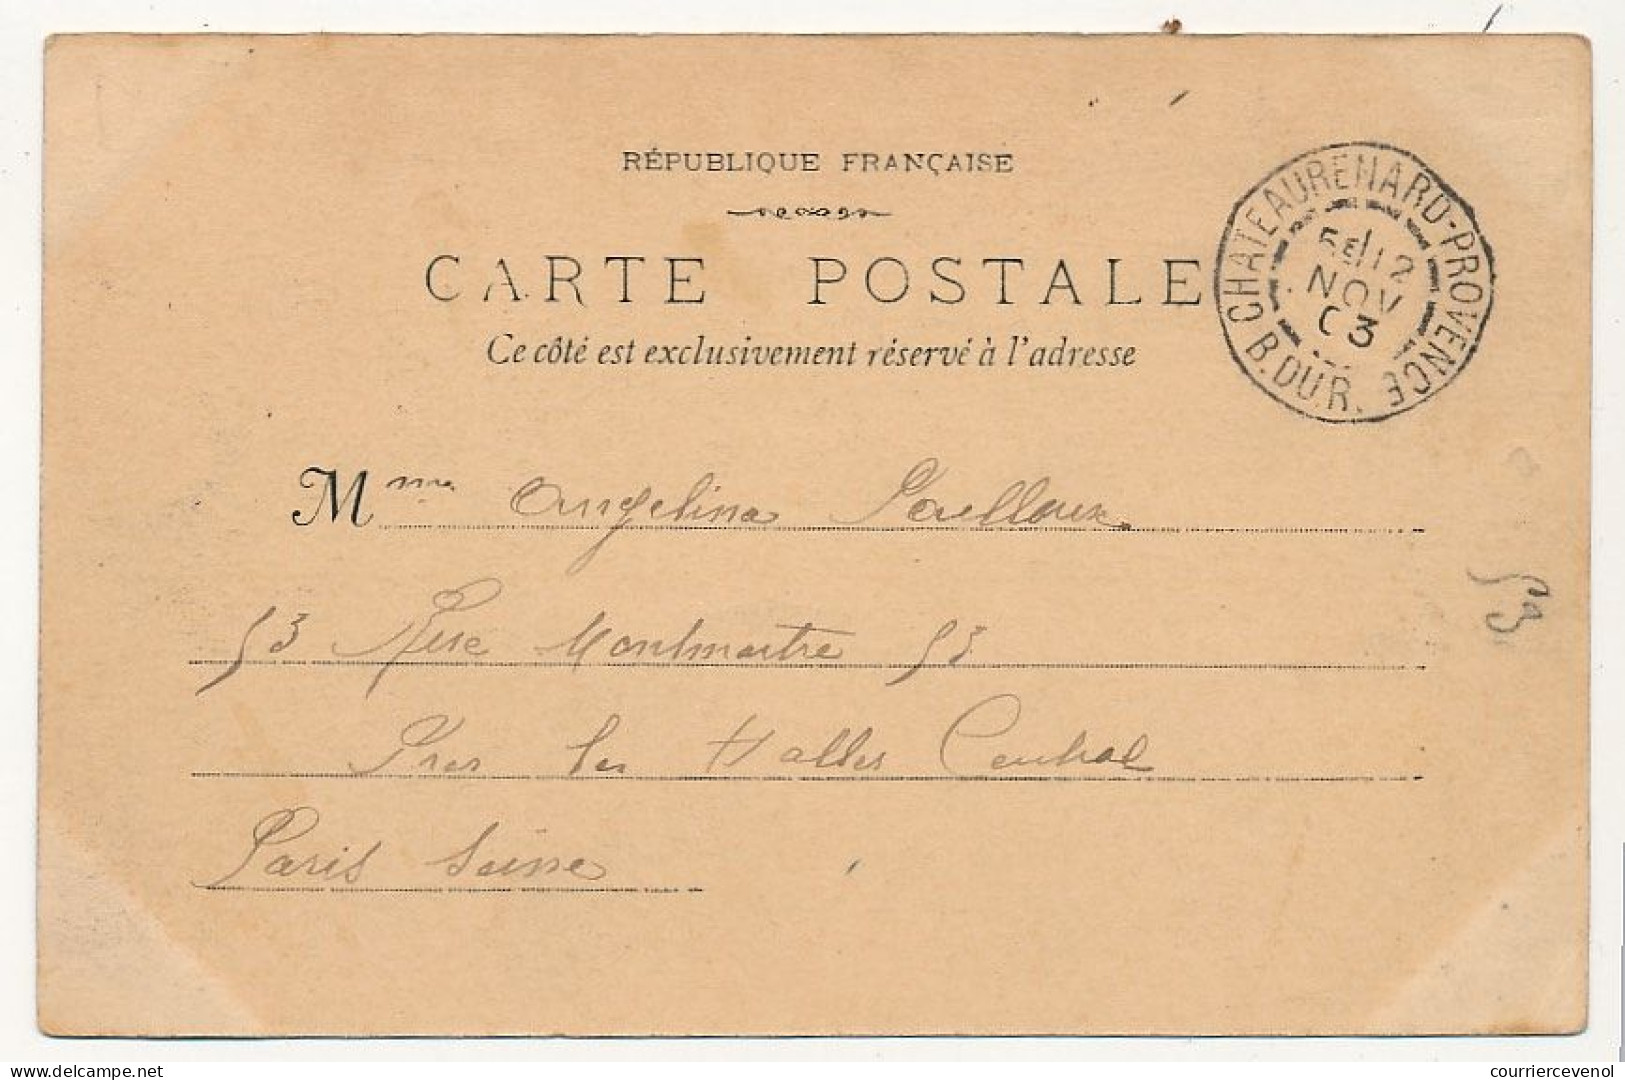 RÉPUBLIQUE FRANÇAISE
CARTE POSTALE
Ce côté est exclusivement réservé à l'adresse
CHATEAURENARD-PROVENCE
12
NOV
03
B. DU R.
Mme Angelina
53 Rue Montmartre 53
Pres les Halles Central
Paris Seine
53
delcampe.net
courriercevenol